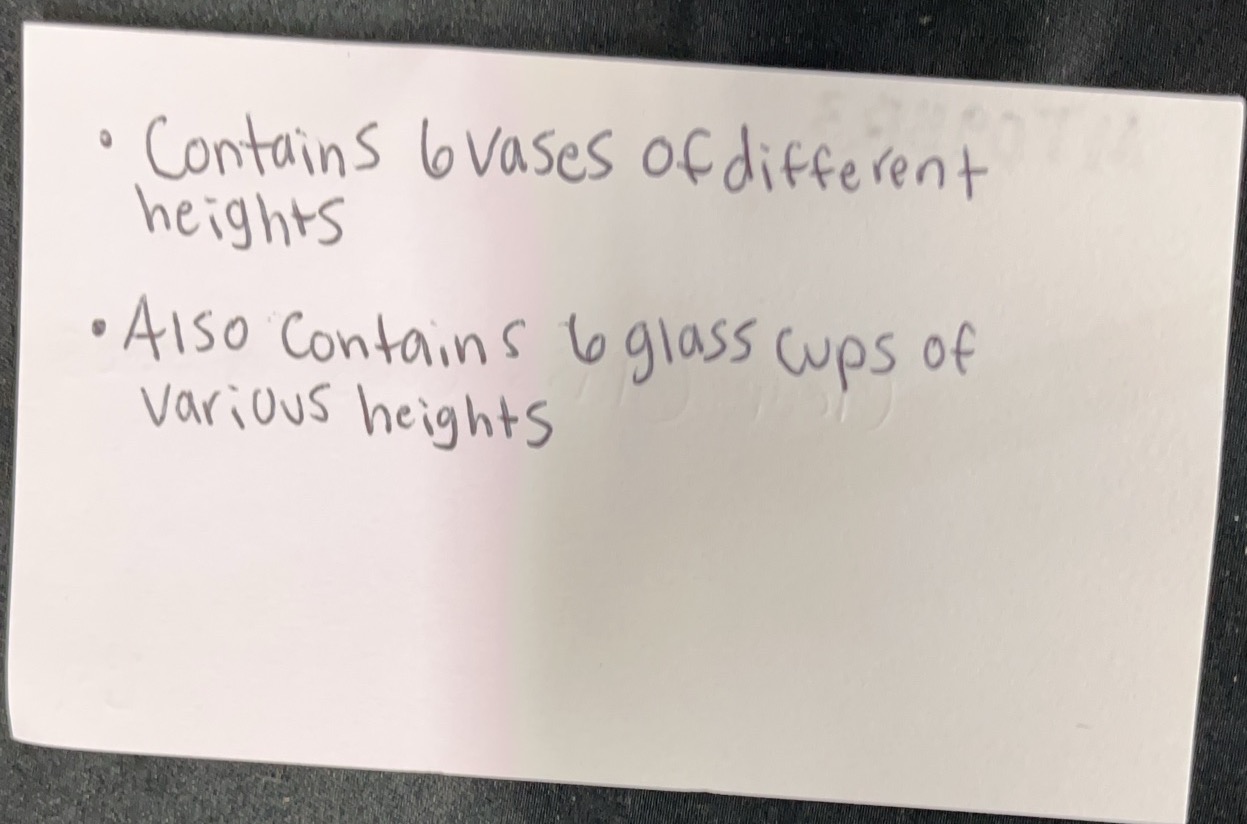 • Contains 6 vases of different
heights
• Also contains 6 glass cups of
various heights